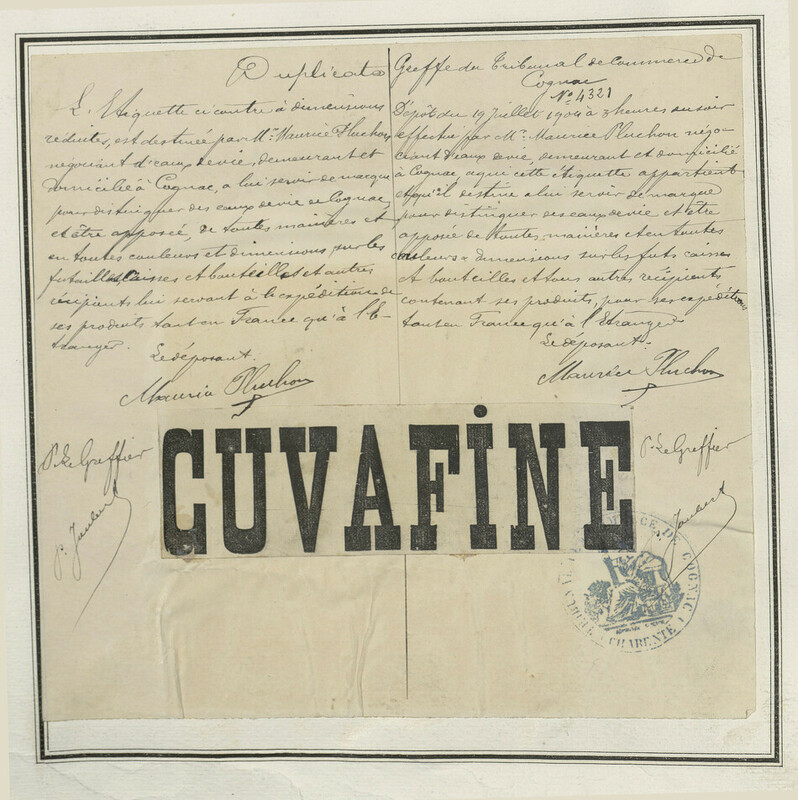 Duplicata
L'Etiquette ci contre à dimensions
réduites, est destinée par Mr. Maurice Pluchon,
négociant d'eaux de vie, demeurant et
domicilié à Cognac, a lui servir de marque
pour distinguer des eaux de vie de Cognac,
et être apposée, de toutes manières et
en toutes couleurs et dimensions, sur les
futailles, caisses et bouteilles et autres
récipients lui servant à l'expédition de
ses produits tant en France qu'à l'E-
tranger.
Le déposant.
Maurice Pluchon
Greffe du Tribunal de Commerce de
Cognac
No 4321
Dépôt du 19 Juillet 1904 à 3 heures du soir
effectué par Mr. Maurice Pluchon négo-
ciant d'eaux de vie, demeurant et domicilié
à Cognac, a qui cette étiquette appartient
et qu'il destine a lui servir de marque
pour distinguer des eaux de vie et être
apposée de toutes manières et en toutes
couleurs & dimensions sur les futs caisses
et bouteilles et tous autres récipients
contenant ses produits, pour ses expéditions
tant en France qu'à l'Etranger.
Le déposant.
Maurice Pluchon
P. Le Greffier
P. Joubert
CUVAFINE
P. Le Greffier
Joubert
COGNAC
CHARENTE